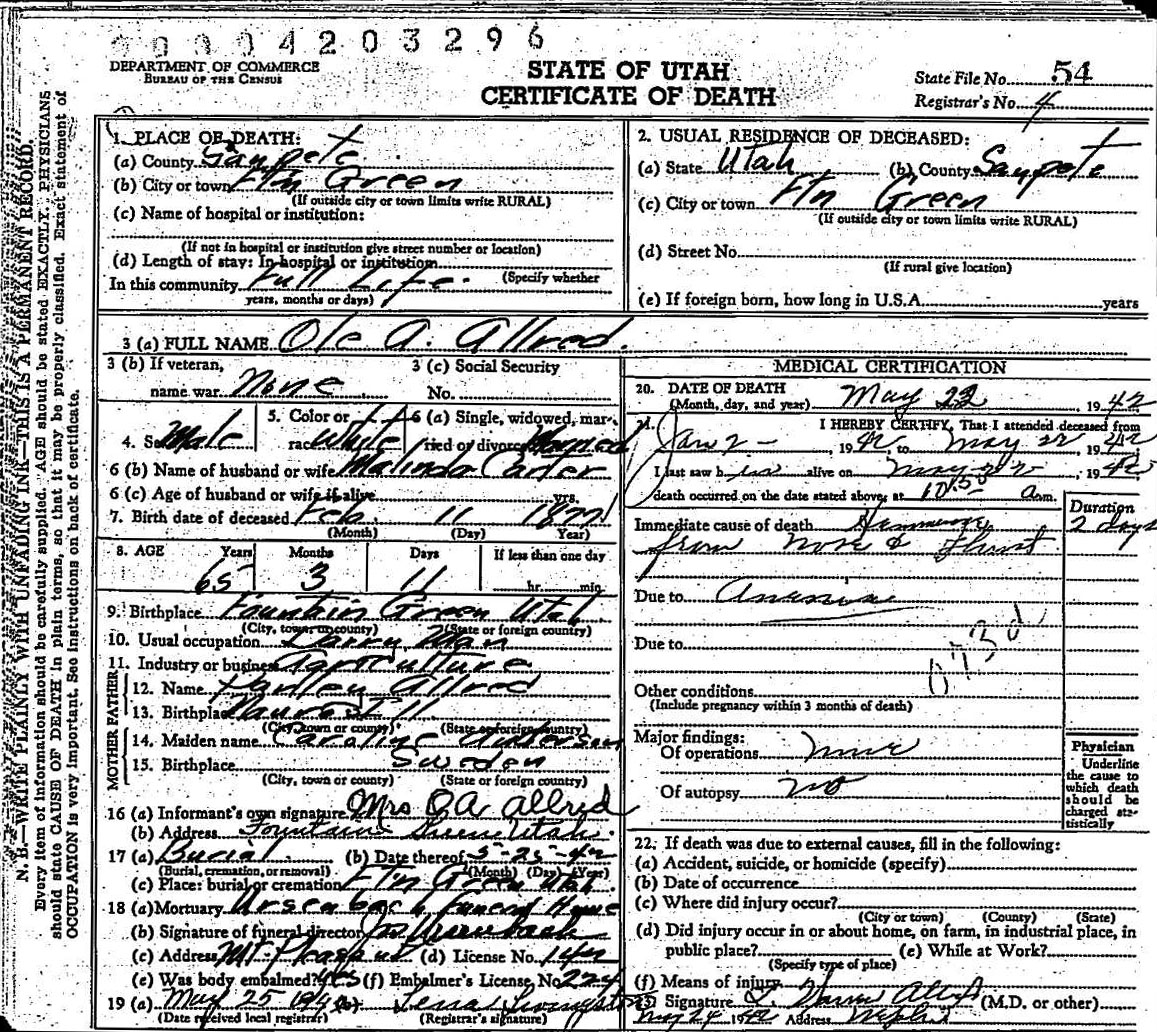 00004203296
DEPARTMENT OF COMMERCE
BUREAU OF THE CENSUS
STATE OF UTAH
CERTIFICATE OF DEATH
State File No. 54
Registrar's No. 4
N. B.—WRITE PLAINLY WITH UNFADING INK—THIS IS A PERMANENT RECORD.
Every item of information should be carefully supplied. AGE should be stated EXACTLY. PHYSICIANS
should state CAUSE OF DEATH in plain terms, so that it may be properly classified. Exact statement of
OCCUPATION is very important. See instructions on back of certificate.
1. PLACE OF DEATH:
(a) County Sanpete
(b) City or town Ftn Green
(If outside city or town limits write RURAL)
(c) Name of hospital or institution:
(If not in hospital or institution give street number or location)
(d) Length of stay: In hospital or institution
(Specify whether
In this community Full Life.
years, months or days)
2. USUAL RESIDENCE OF DECEASED:
(a) State Utah (b) County Sanpete
(c) City or town Ftn Green
(If outside city or town limits write RURAL)
(d) Street No.
(If rural give location)
(e) If foreign born, how long in U.S.A. years
3 (a) FULL NAME Ole A. Allred.
3 (b) If veteran, name war None
3 (c) Social Security No.
4. Sex Male
5. Color or race White
6 (a) Single, widowed, married or divorced Married
6 (b) Name of husband or wife Malinda Carter
6 (c) Age of husband or wife if alive yrs.
7. Birth date of deceased Feb. 11 1877
(Month) (Day) Year)
8. AGE Years Months Days If less than one day
65 3 11 hr. min.
9. Birthplace Fountin Green Utah
(City, town, or county) (State or foreign country)
10. Usual occupation Dairy Man
11. Industry or business Agriculture
FATHER
12. Name Allred
13. Birthplace Ill
(City, town or county) (State or foreign country)
MOTHER
14. Maiden name Caroline Anderson
15. Birthplace Sweden
(City, town or county) (State or foreign country)
16 (a) Informant's own signature Mrs O A Allred
(b) Address Fountain Green Utah.
17 (a) Burial. (b) Date thereof 5-25-42
(Burial, cremation, or removal) (Month) (Day) (Year)
(c) Place: burial or cremation Ftn Green Utah.
18 (a) Mortuary Ursenbach Funeral Home
(b) Signature of funeral director Ursenbach
(c) Address Mt. Pleasant (d) License No. 142
(e) Was body embalmed? yes (f) Embalmer's License, No 224
19 (a) May 25 1942 (b) Lena Livingston
(Date received local registrar) (Registrar's signature)
MEDICAL CERTIFICATION
20. DATE OF DEATH
(Month, day, and year) May 22 1942
21. I HEREBY CERTIFY, That I attended deceased from
Jan 2 - , 1942, to May 22 1942
I last saw him alive on May 22 , 1942
death occurred on the date stated above, at 10:50 a.m.
Duration
Immediate cause of death 2 days
from Nose &
Due to Anemia
Due to
073d
Other conditions
(Include pregnancy within 3 months of death)
Major findings:
Of operations none
Of autopsy no
Physician
Underline
the cause to
which death
should be
charged sta-
tistically
22. If death was due to external causes, fill in the following:
(a) Accident, suicide, or homicide (specify)
(b) Date of occurrence
(c) Where did injury occur?
(City or town) (County) (State)
(d) Did injury occur in or about home, on farm, in industrial place, in
public place? (e) While at Work?
(Specify type of place)
(f) Means of injury
23 Signature (M.D. or other)
May 24 1942 Address Nephi